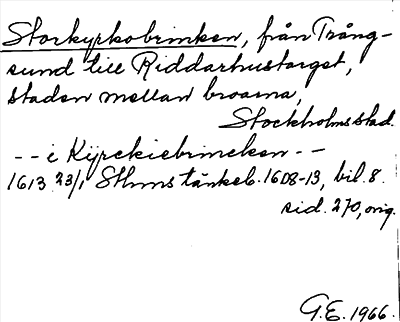 Storkyrkobrinken, från Trång-
sund till Riddarhustorget,
staden mellan broarna,
Stockholms stad.
-- i Kÿrckiebrincken --
1613 23/1 Sthms tänkeb. 1608-13, bil. 8.
sid. 270, orig.
G.E. 1966.